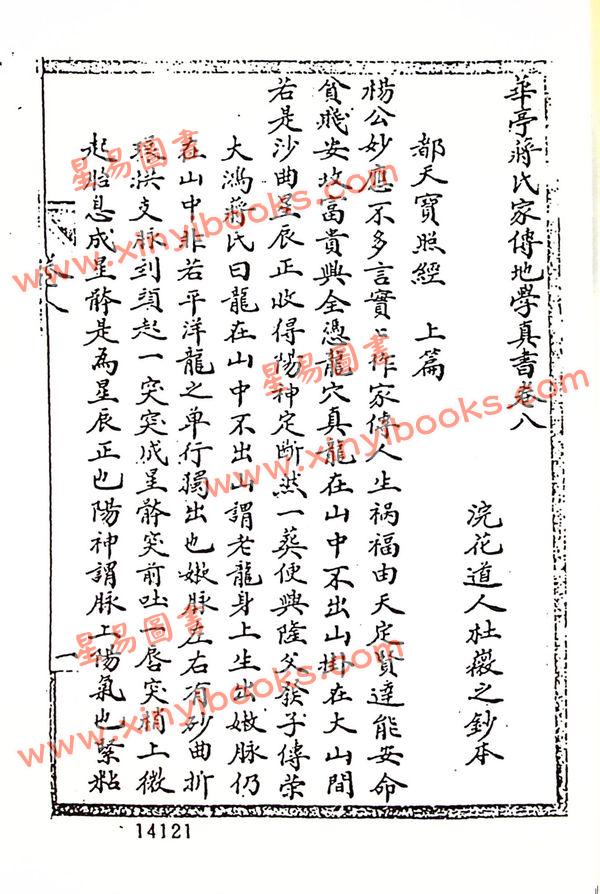 華亭蔣氏家傳地學真書卷八
浣花道人杜薇之鈔本
都天寶照經 上篇
楊公妙應不多言實〻作家傳人生禍福由天定賢達能安命
貧賤安坟富貴興全憑龍穴真龍在山中不出山掛在大山間
若是沙曲星辰正收得陽神定斷然一葬便興隆父發子傳荣
大鴻蔣氏曰龍在山中不出山謂老龍身上生出嫩脉仍
在山中非若平洋龍之单行獨出也嫩脉左右有砂曲折
環拱支脉到頭起一突突成星體突前吐一唇突梢上微
起胎息成星體是為星辰正也陽神謂脉上陽氣也緊粘
卷八
一
14121
星易圖書
www.xinyibooks.com
星易圖書
www.xinyibooks.com
星易圖書
www.xinyibooks.com